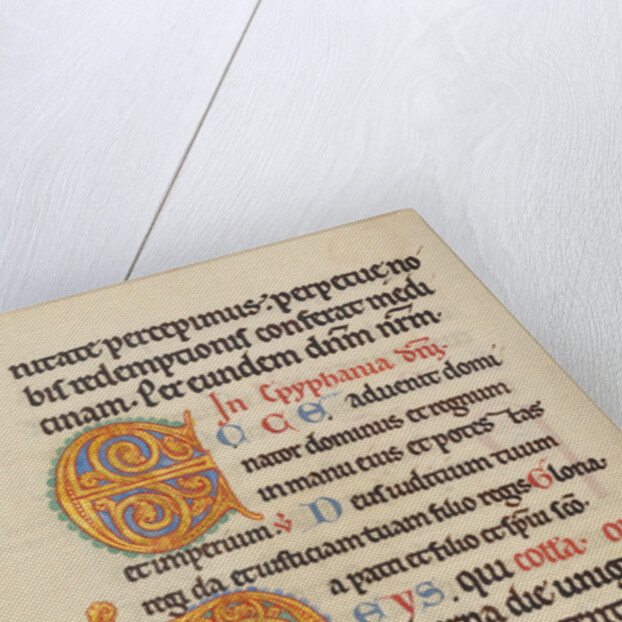 nitate percepimus: perpetue no
bis redemptionis conferat medi
cinam. Per eundem dñm nrm.
In Epyphania dñi.
E C C E aduenit domi
nator dominus et regnum
in manu eius et potestas
et imperium. V D eus iuditium tuum
regi da et iusticiam tuam filio regis Gloria
a patri et filio et spiu sco.
D eus. qui cotta.
die unig